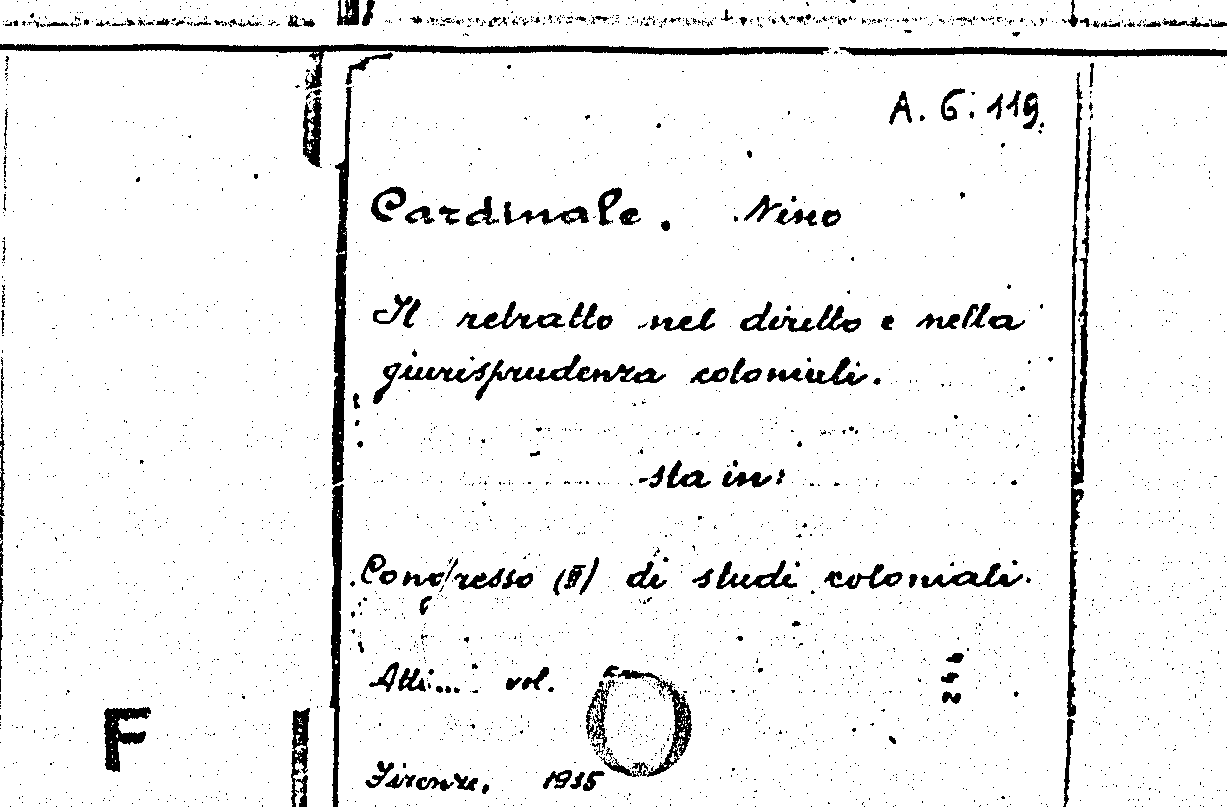 A. 6. 119.
Cardinale. Nino
Il retratto nel diretto e nella
giurisprudenza coloniali.
sta in:
Congresso (II) di studi coloniali.
Atti... vol.
F
Firenze, 1935